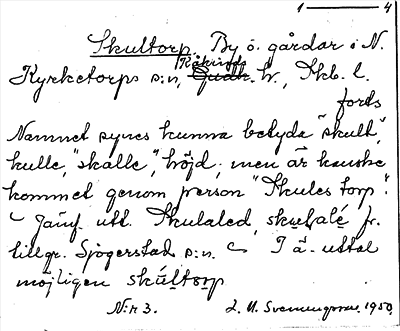 1 —— 4
Skultorp. By o. gårdar i N.
Kåkinds
Kyrketorps s:n, Gudh. hr., Skb. l.
forts
Namnet synes kunna betyda "skult",
kulle, "skalle", höjd, men är kanske
kommet genom person "Skules torp".
Jämf. utt. Skulaled, skulalé fr.
tillgr. Sjogerstad s:n. I ä. uttal
möjligen skúltorp
N:r 3. L. M. Svenungsson. 1950.